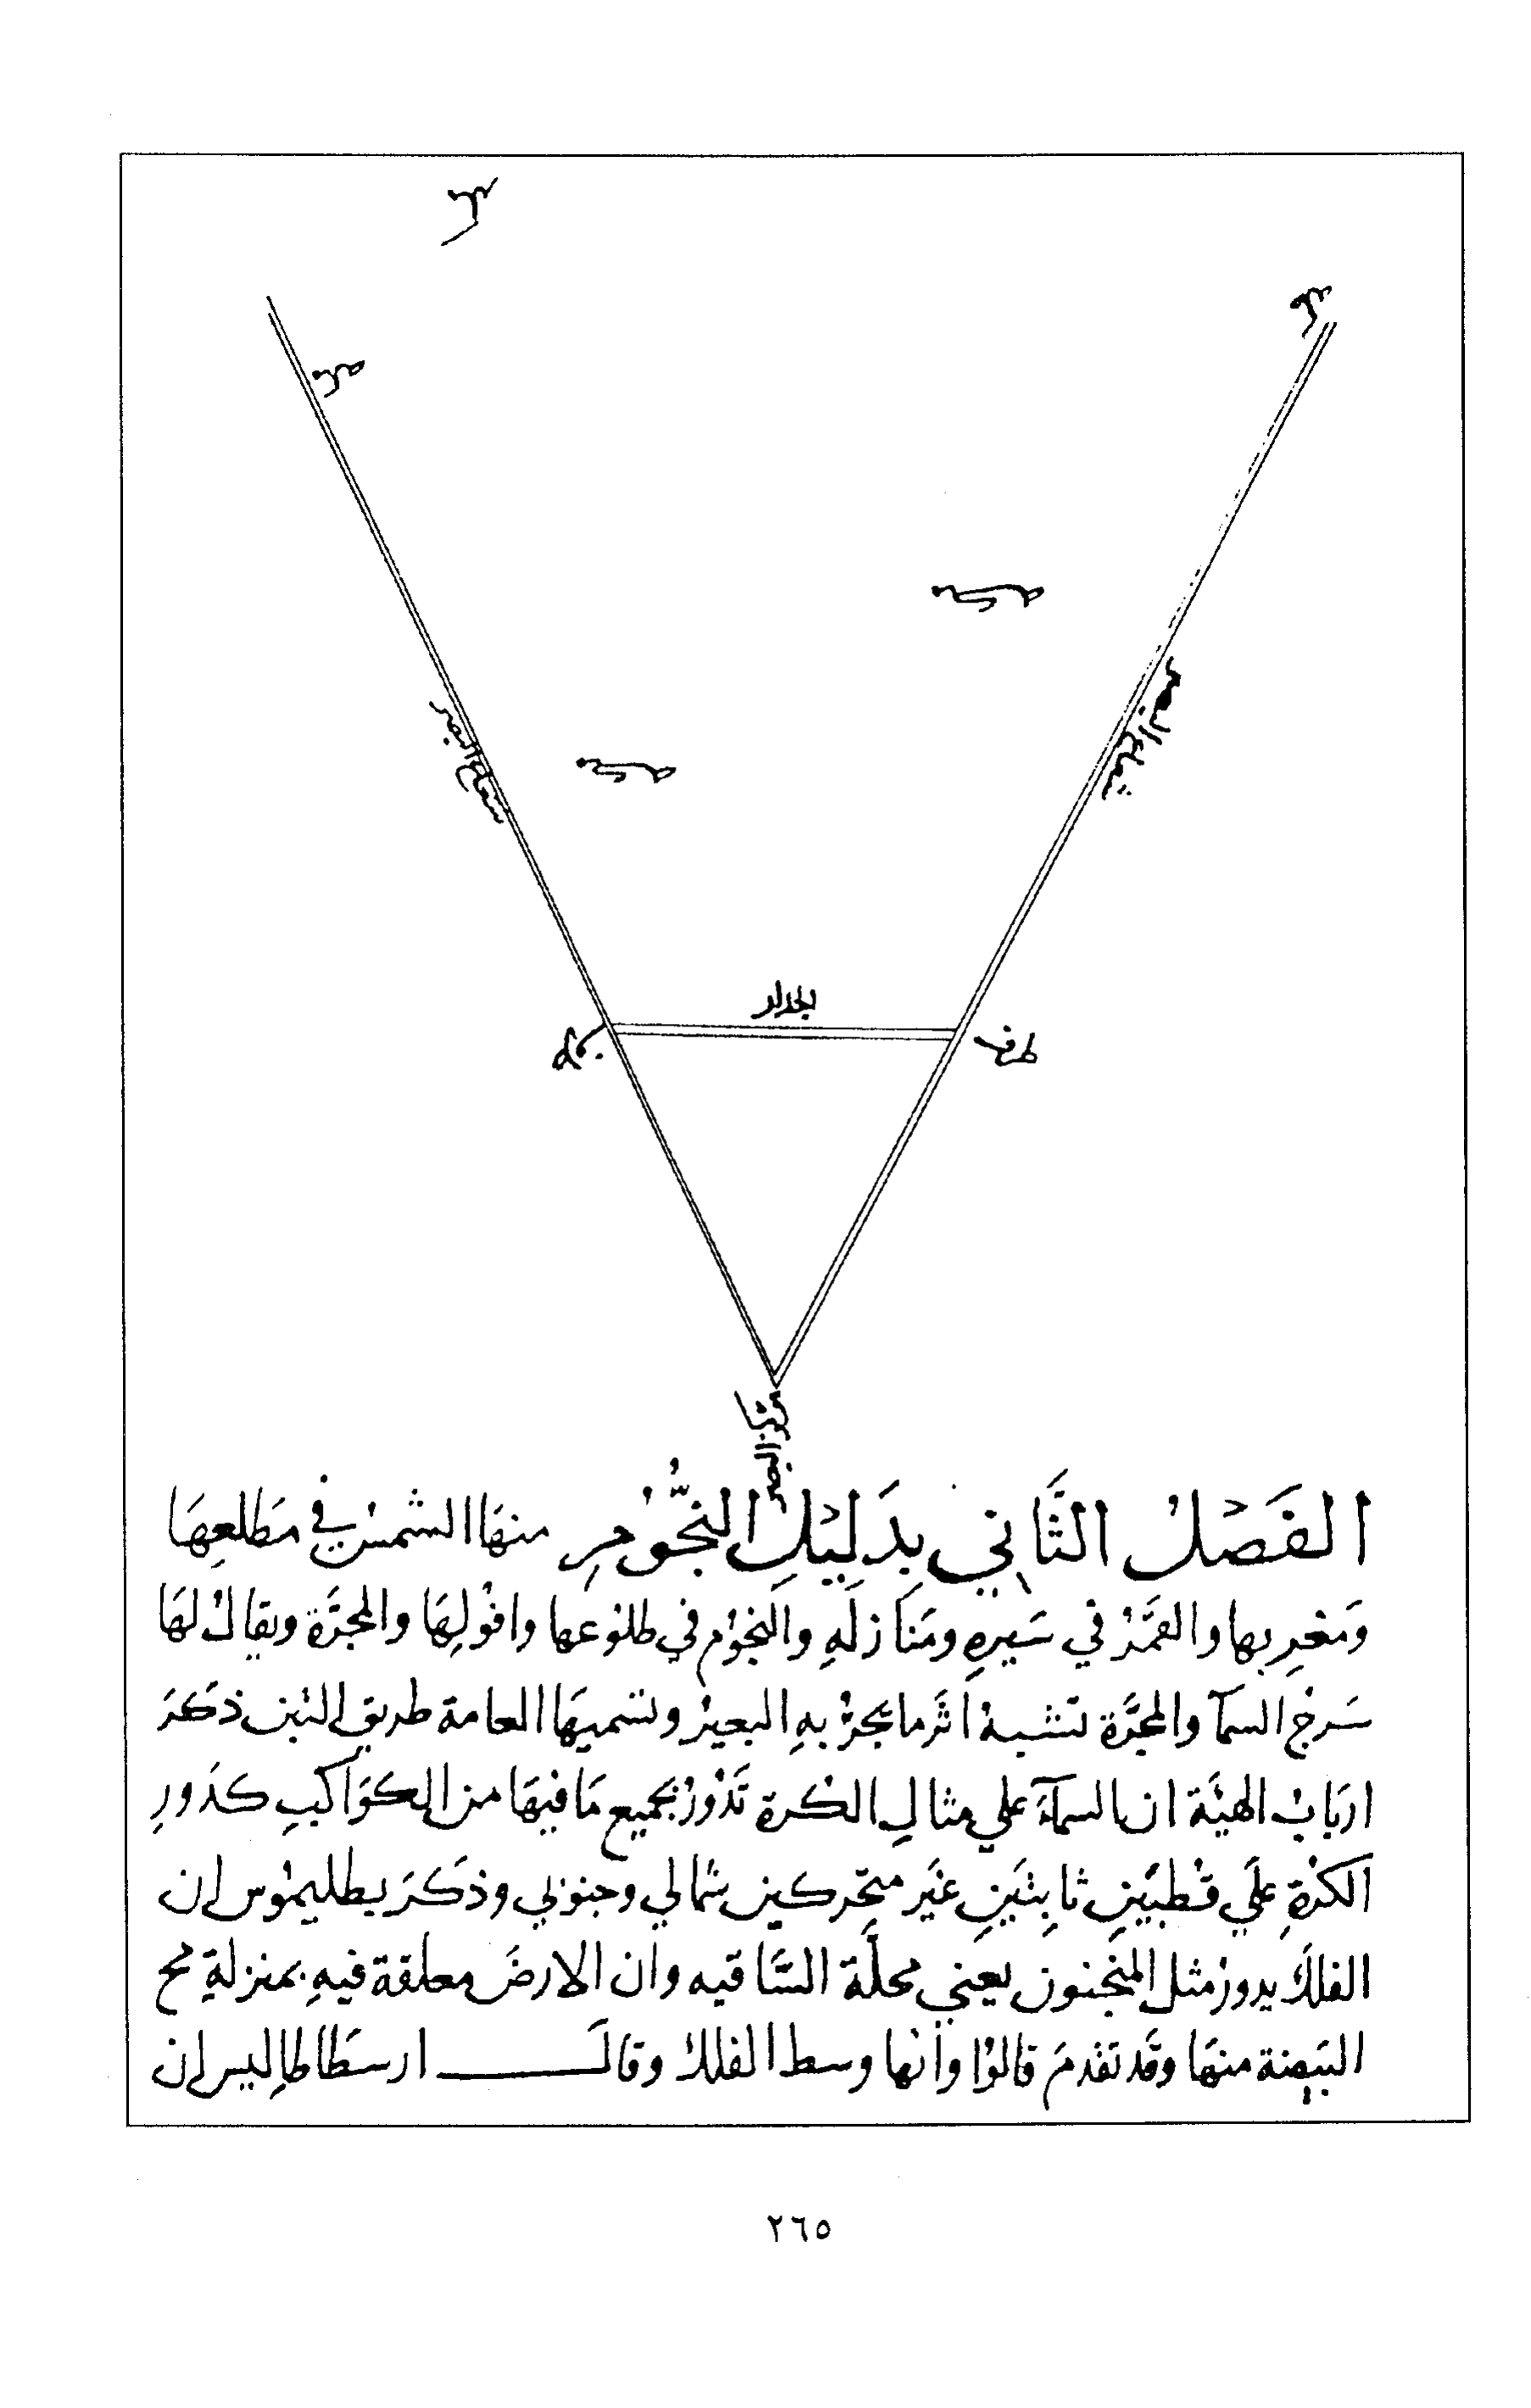 مكة
مكة
شعاع البصر
شعاع البصر
الجدار
طرف
مركز البصر
الفَصْلُ الثَّاني بِدَلِيْلِ النجُّوُمِ منهَا الشَّمسُ في مَطَالعِهَا
وَمغربها والقمَرُ في سَيرهِ ومَنَازلَهِ والنجوُم في طلوُعها وافوُلِهَا والمجَرَّة ويقالُ لهَا
سَرجُ السمآ والمجَرَّة تشبيهُ اثَر ما يجرُّ بهِ البعيرُ وتسميهَا العامة طريق التبن ذكَرَ
اربَابُ الهيئَة ان السمآءَ علي مثالِ الكرة تَدُوُر بجميع مَا فيهَا من الكوَاكبِ كدَورِ
الكرْةِ علَي قطبَينِ ثابِتَينِ غيَر متحركين شمالي وجنوبي وذكَرَ بطليموُس ان
الفلَك يدورُ مثل المنجنون يعني محلَّة السَّاقيه وان الارضَ معلقة فيهِ بمنزلةِ مح
البَيضة منهَا وقَد تقدمَ قالوُا وانها وسط الفلك وقالَ ارسَطَاطاليس ان
٢٦٥